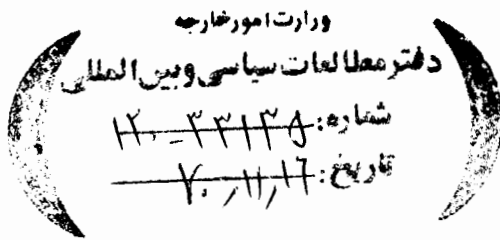 وزارت امور خارجه
دفتر مطالعات سیاسی و بین المللی
شماره: ۱۲۰-۳۳۱۳۵
تاریخ: ۷۰,۱۱,۱۶